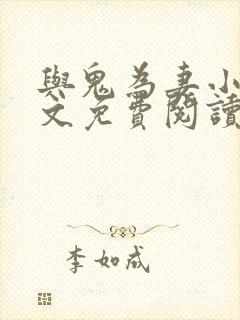 與鬼為妻小
文免費閱讀
李如成